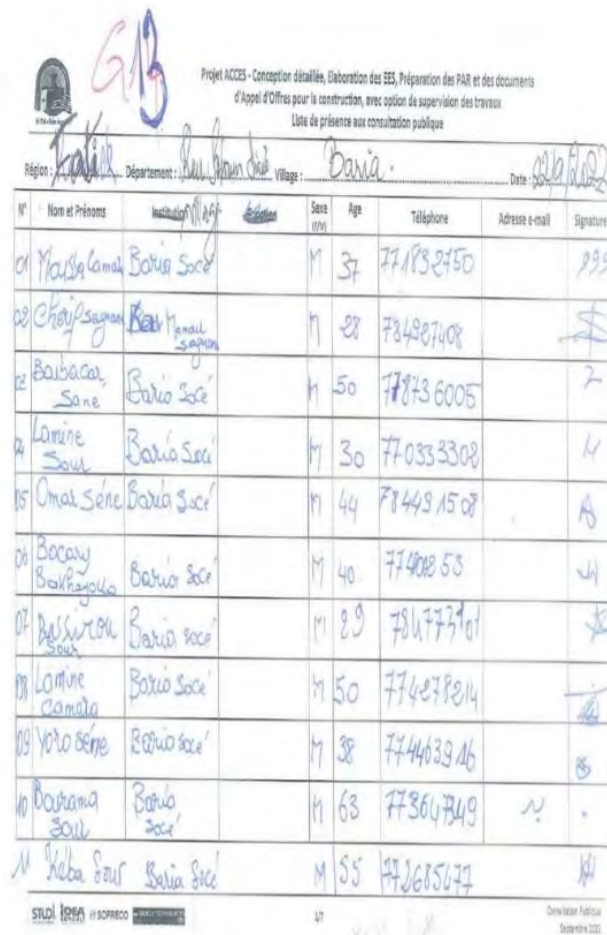 G13
Projet ACCES - Conception détaillée, Elaboration des EES, Préparation des PAR et des documents
d'Appel d'Offres pour la construction, avec option de supervision des travaux
Liste de présence aux consultation publique
Région : Département : Village : Baria. Date : 02/9/2022
N° Nom et Prénoms Institution Sexe Age Téléphone Adresse e-mail Signature
(F/M)
01 Moussa Camara Baria Socé M 37 771832750
02 Cherif Sagnan M 28 784927408
03 Babacar Sane Baria Socé M 50 778736005
04 Lamine Sour Baria Socé M 30 770333302
05 Omar Séne Baria Socé M 44 784491508
06 Bocary Baria Socé M 40
07 Bassirou Sour Baria Socé M 29
08 Lamine Camara Baria Socé M 50 774278214
09 Yoro Séne Baria Socé M 38 774463916
10 Bourama Sour Baria Socé M 63
11 Keba Sour Baria Socé M 55 772685477
STUDI IDEA SOPRECO 1/7 Consultation Publique
Septembre 2022